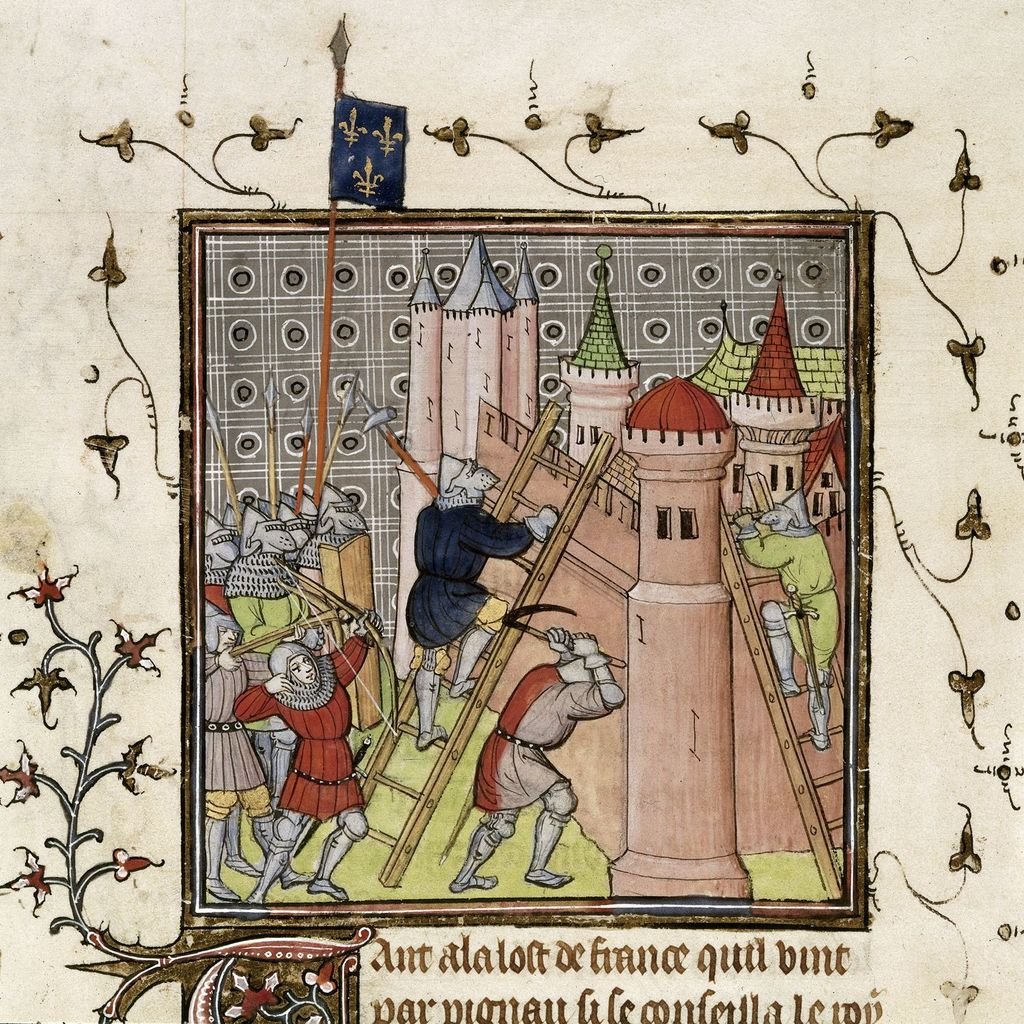 Tant ala lost de france quil vint
par pignau si se conseilla le roy